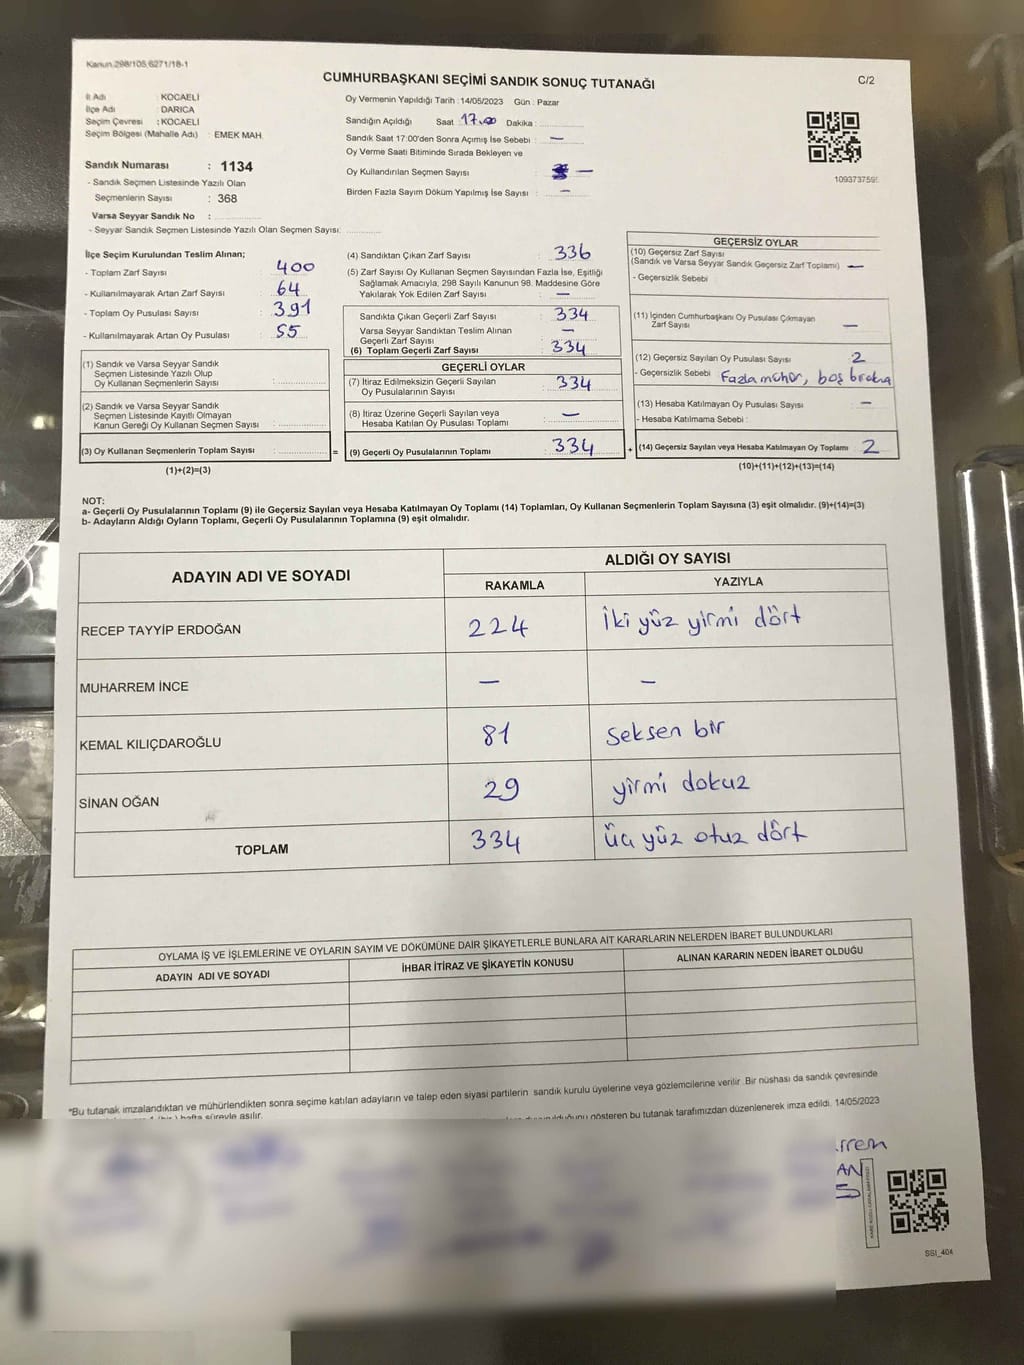 Kanun.298/105,6271/18-1
CUMHURBAŞKANI SEÇİMİ SANDIK SONUÇ TUTANAĞI
C/2
İl Adı : KOCAELİ
İlçe Adı : DARICA
Seçim Çevresi : KOCAELİ
Seçim Bölgesi (Mahalle Adı) : EMEK MAH.
Sandık Numarası : 1134
- Sandık Seçmen Listesinde Yazılı Olan
Seçmenlerin Sayısı : 368
Varsa Seyyar Sandık No :
- Seyyar Sandık Seçmen Listesinde Yazılı Olan Seçmen Sayısı:
Oy Vermenin Yapıldığı Tarih : 14/05/2023 Gün : Pazar
Sandığın Açıldığı Saat : 17.00 Dakika :
Sandık Saat 17:00'den Sonra Açımış İse Sebebi : —
Oy Verme Saati Bitiminde Sırada Bekleyen ve
Oy Kullandırılan Seçmen Sayısı : —
Birden Fazla Sayım Döküm Yapılmış İse Sayısı : —
109373759
İlçe Seçim Kurulundan Teslim Alınan;
- Toplam Zarf Sayısı : 400
- Kullanılmayarak Artan Zarf Sayısı : 64
- Toplam Oy Pusulası Sayısı : 391
- Kullanılmayarak Artan Oy Pusulası : 55
(1) Sandık ve Varsa Seyyar Sandık
Seçmen Listesinde Yazılı Olup
Oy Kullanan Seçmenlerin Sayısı :
(2) Sandık ve Varsa Seyyar Sandık
Seçmen Listesinde Kayıtlı Olmayan
Kanun Gereği Oy Kullanan Seçmen Sayısı :
(3) Oy Kullanan Seçmenlerin Toplam Sayısı : =
(1)+(2)=(3)
(4) Sandıktan Çıkan Zarf Sayısı : 336
(5) Zarf Sayısı Oy Kullanan Seçmen Sayısından Fazla İse, Eşitliği
Sağlamak Amacıyla, 298 Sayılı Kanunun 98. Maddesine Göre
Yakılarak Yok Edilen Zarf Sayısı : —
Sandıkta Çıkan Geçerli Zarf Sayısı : 334
Varsa Seyyar Sandıktan Teslim Alınan
Geçerli Zarf Sayısı : —
(6) Toplam Geçerli Zarf Sayısı : 334
GEÇERLİ OYLAR
(7) İtiraz Edilmeksizin Geçerli Sayılan
Oy Pusulalarının Sayısı : 334
(8) İtiraz Üzerine Geçerli Sayılan veya
Hesaba Katılan Oy Pusulası Toplamı : —
(9) Geçerli Oy Pusulalarının Toplamı : 334 +
GEÇERSİZ OYLAR
(10) Geçersiz Zarf Sayısı
(Sandık ve Varsa Seyyar Sandık Geçersiz Zarf Toplamı) : —
- Geçersizlik Sebebi
(11) İçinden Cumhurbaşkanı Oy Pusulası Çıkmayan
Zarf Sayısı : —
(12) Geçersiz Sayılan Oy Pusulası Sayısı : 2
- Geçersizlik Sebebi : Fazla mühür, boş
(13) Hesaba Katılmayan Oy Pusulası Sayısı : —
- Hesaba Katılmama Sebebi :
(14) Geçersiz Sayılan veya Hesaba Katılmayan Oy Toplamı : 2
(10)+(11)+(12)+(13)=(14)
NOT:
a- Geçerli Oy Pusulalarının Toplamı (9) ile Geçersiz Sayılan veya Hesaba Katılmayan Oy Toplamı (14) Toplamları, Oy Kullanan Seçmenlerin Toplam Sayısına (3) eşit olmalıdır. (9)+(14)=(3)
b- Adayların Aldığı Oyların Toplamı, Geçerli Oy Pusulalarının Toplamına (9) eşit olmalıdır.
ADAYIN ADI VE SOYADI
ALDIĞI OY SAYISI
RAKAMLA YAZIYLA
RECEP TAYYİP ERDOĞAN 224 iki yüz yirmi dört
MUHARREM İNCE — —
KEMAL KILIÇDAROĞLU 81 Seksen bir
SİNAN OĞAN 29 yirmi dokuz
TOPLAM 334 üç yüz otuz dört
OYLAMA İŞ VE İŞLEMLERİNE VE OYLARIN SAYIM VE DÖKÜMÜNE DAİR ŞİKAYETLERLE BUNLARA AİT KARARLARIN NELERDEN İBARET BULUNDUKLARI
ADAYIN ADI VE SOYADI İHBAR İTİRAZ VE ŞİKAYETİN KONUSU ALINAN KARARIN NEDEN İBARET OLDUĞU
*Bu tutanak imzalandıktan ve mühürlendikten sonra seçime katılan adayların ve talep eden siyasi partilerin sandık kurulu üyelerine veya gözlemcilerine verilir. Bir nüshası da sandık çevresinde
hafta süreyle asılır.
gösteren bu tutanak tarafımızdan düzenlenerek imza edildi. 14/05/2023
SSI_404